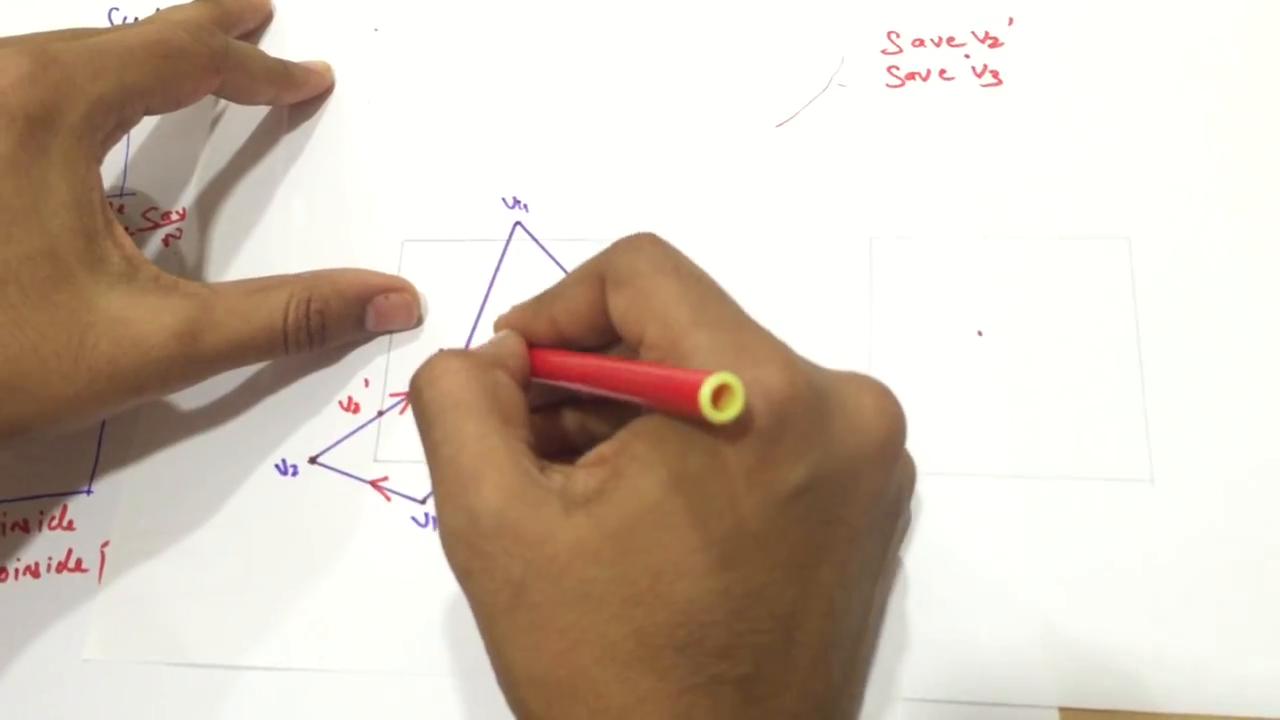 Save v2'
Save v3
Sav
v4
v2'
v2
v1
inside